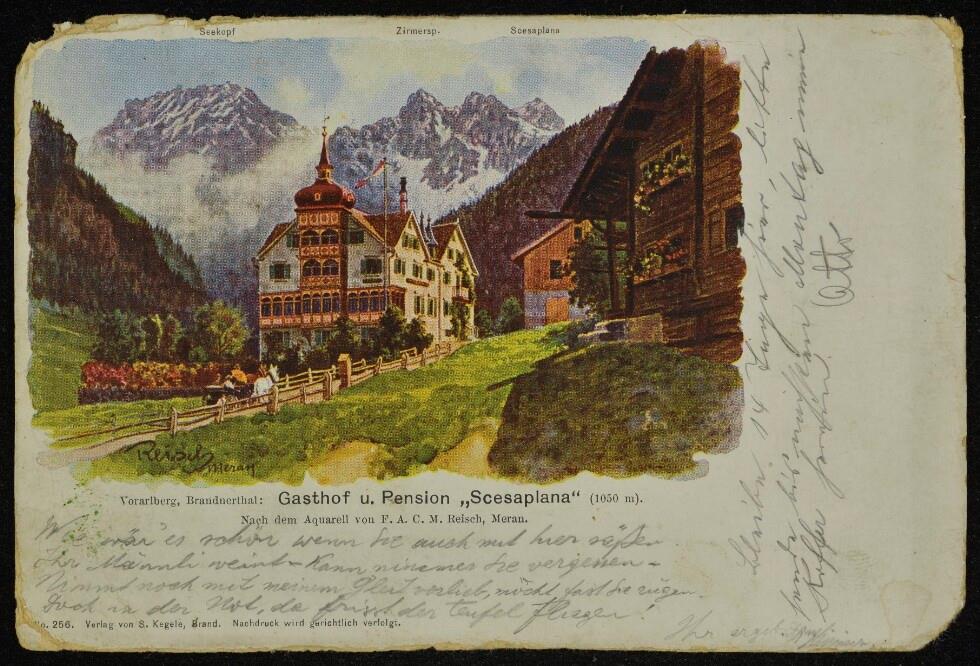 Seekopf Zirmersp. Scesaplana
Reisch
Meran
Vorarlberg, Brandnerthal: Gasthof u. Pension „Scesaplana“ (1050 m).
Nach dem Aquarell von F. A. C. M. Reisch, Meran.
Wie wär es schön wenn Sie auch mit hier säßen
Ihr Männli weint - Kann nimmer Sie vergessen -
Nimmt noch mit meinem Gleit vorlieb, möcht fast Sie rügen
Doch in der Not, da frisst der Teufel Fliegen!
No. 256. Verlag von S. Kegele, Brand. Nachdruck wird gerichtlich verfolgt.
Ihr ergeb.
Bleibe 14 Tage hier bitte
sende
Koffer hierher
Otto